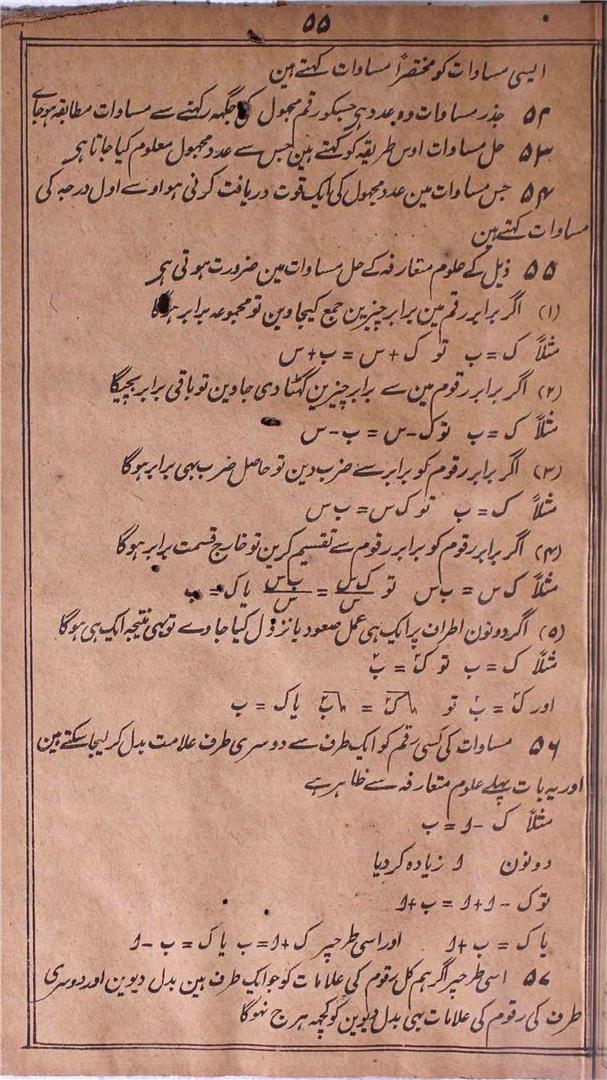 ۵۵
ایسی مساوات کو مختصراً مساوات کہتے ہین
۵۲ جذر مساوات وہ عدد ہی جسکو رقم مجہول کی جگہہ رکہنے سے مساوات مطابقہ ہو جاے
۵۳ حل مساوات اوس طریقہ کو کہتے ہین جس سے عدد مجہول معلوم کیا جاتا ہی
۵۴ جس مساوات مین عدد مجہول کی ایک قوت دریافت کرنی ہو اوسے اول درجہ کی
مساوات کہتے ہین
۵۵ ذیل کے علوم متعارفہ کے حل مساوات مین ضرورت ہوتی ہی
(۱) اگر برابر رقم مین برابر چیزین جمع کیجاوین تو مجموعہ برابر ہوگا
مثلاً ک = ب تو ک + س = ب + س
(۲) اگر برابر رقوم مین سے برابر چیزین گہٹا دی جاوین تو باقی برابر بچیگا
مثلاً ک = ب تو ک - س = ب - س
(۳) اگر برابر رقوم کو برابر سے ضرب دین تو حاصل ضرب بہی برابر ہوگا
مثلاً ک = ب تو ک س = ب س
(۴) اگر برابر رقوم کو برابر رقوم سے تقسیم کرین تو خارج قسمت برابر ہوگا
مثلاً ک س = ب س تو ک س / س = ب س / س یا ک = ب
(۵) اگر دونون اطراف پر ایک ہی عمل صعود یا نزول کیا جاوے تو بہی نتیجہ ایک ہی ہوگا
مثلاً ک = ب تو ک۲ = ب۲
اور ک = ب تو ک = ب یا ک = ب
۵۶ مساوات کی کسی رقم کو ایک طرف سے دوسری طرف علامت بدل کر لیجا سکتے ہین
اور یہ بات پہلے علوم متعارفہ سے ظاہر ہے
مثلاً ک - ۱ = ب
دونون ۱ زیادہ کر دیا
تو ک - ۱ + ۱ = ب + ۱
یا ک = ب + ۱ اور اسی طرحپر ک + ۱ = ب یا ک = ب - ۱
۵۷ اسی طرحپر اگر ہم کل رقوم کی علامات کو جو ایک طرف ہین بدل دیوین اور دوسری
طرف کی رقوم کی علامات بہی بدل دیوین تو کچہہ ہرج نہوگا